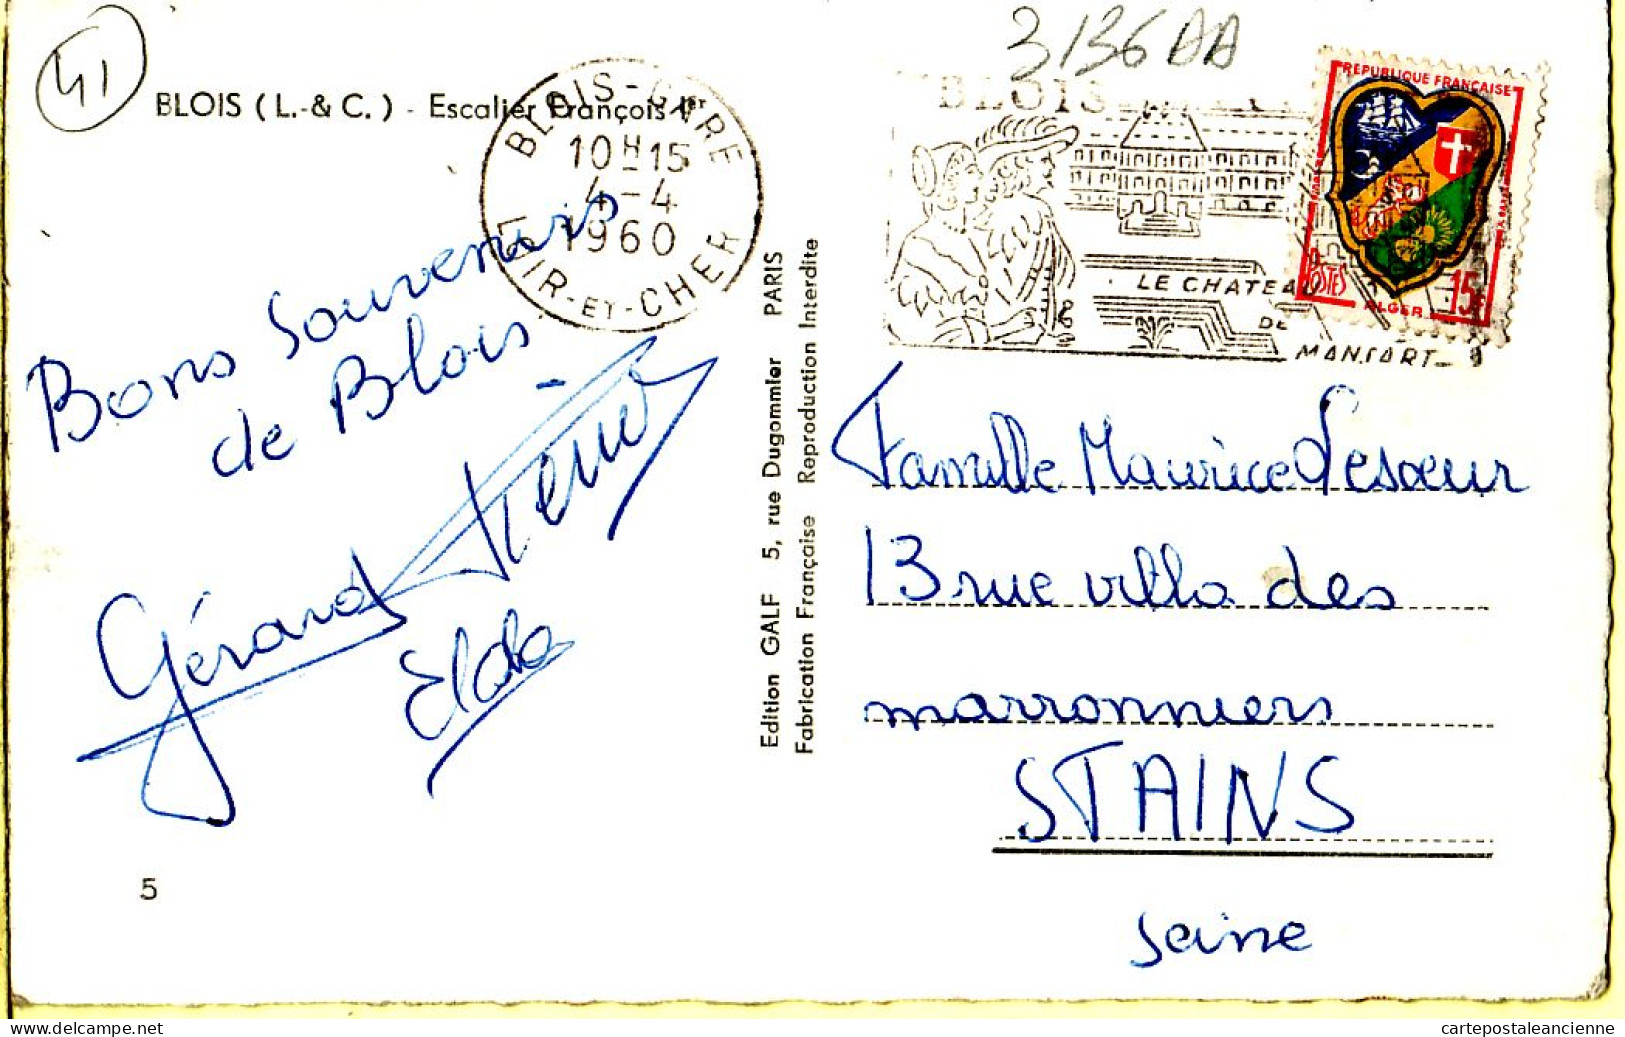 41
3136AA
BLOIS ( L.-& C. ) - Escalier François Ier
BLOIS-GARE
10H15
4-4
1960
LOIR-ET-CHER
BLOIS
LE CHATEAU
DE
MANSART
REPUBLIQUE FRANÇAISE
POSTES
ALGER
15F
Bons souvenirs
de Blois
Gérard
Elda
Edition GALF 5, rue Dugommier PARIS
Fabrication Française Reproduction Interdite
Famille Maurice Lesœur
13 rue villa des
marronniers
STAINS
Seine
5
cartepostaleancienne